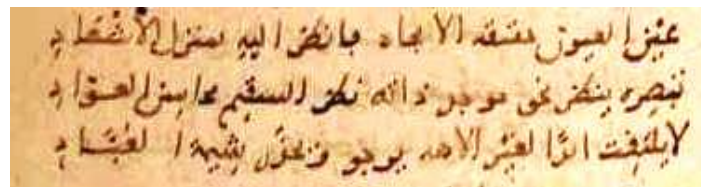 عين العيون حقيقة الايجاد فانظر اليه بمنزل الأشهاد
تبصره ينظر نحو موجد ذاته نظر السقيم محاسن العواد
لا يلتفت ابدًا لغير الاهه يرجو ويحذر شيمة العباد